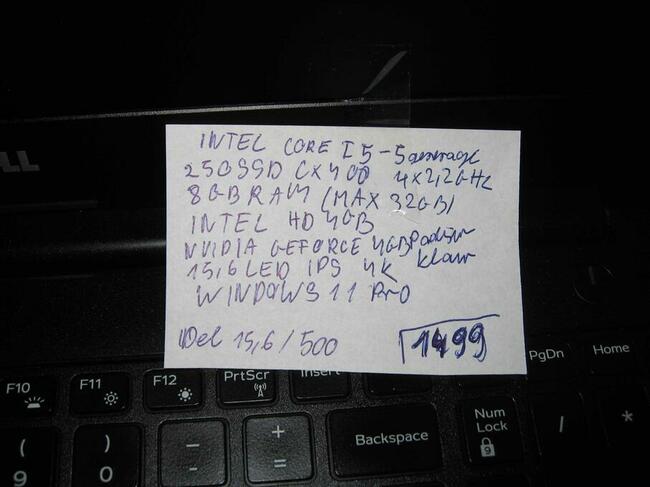 DELL
INTEL CORE I5-5generacje
250SSD CX400 4x2,2GHz
8GB RAM (MAX 32GB)
INTEL HD 4GB
NVIDIA GEFORCE 4GB Podśw
15,6 LED IPS 4K klaw
WINDOWS 11 PRO
Del 15,6/500
1499
PgDn Home
F10 F11 F12 PrtScr Insert
( ) - + Backspace Num Lock / *
9 0 _ = 9